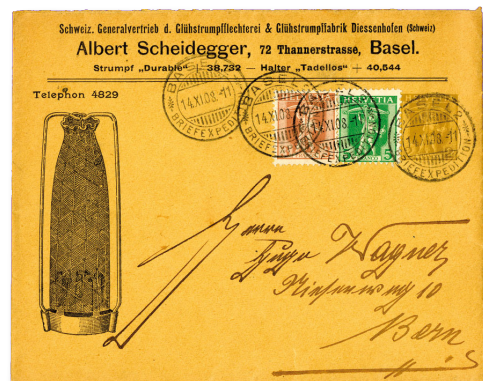 Schweiz. Generalvertrieb d. Glühstrumpfflechterei & Glühstrumpffabrik Diessenhofen (Schweiz)
Albert Scheidegger, 72 Thannerstrasse, Basel.
Strumpf „Durable“ + 38,732 — Halter „Tadellos“ + 40,544
Telephon 4829
BASEL
14.XI.08.-11
BRIEFEXPEDITION
BASEL
14.XI.08.-11
BRIEFEXPEDITION
BASEL
14.XI.08.-11
BRIEFEXPEDITION
BASEL
14.XI.08.-11
BRIEFEXPEDITION
HELVETIA
5
Herrn
Hugo Wagner
10
Bern